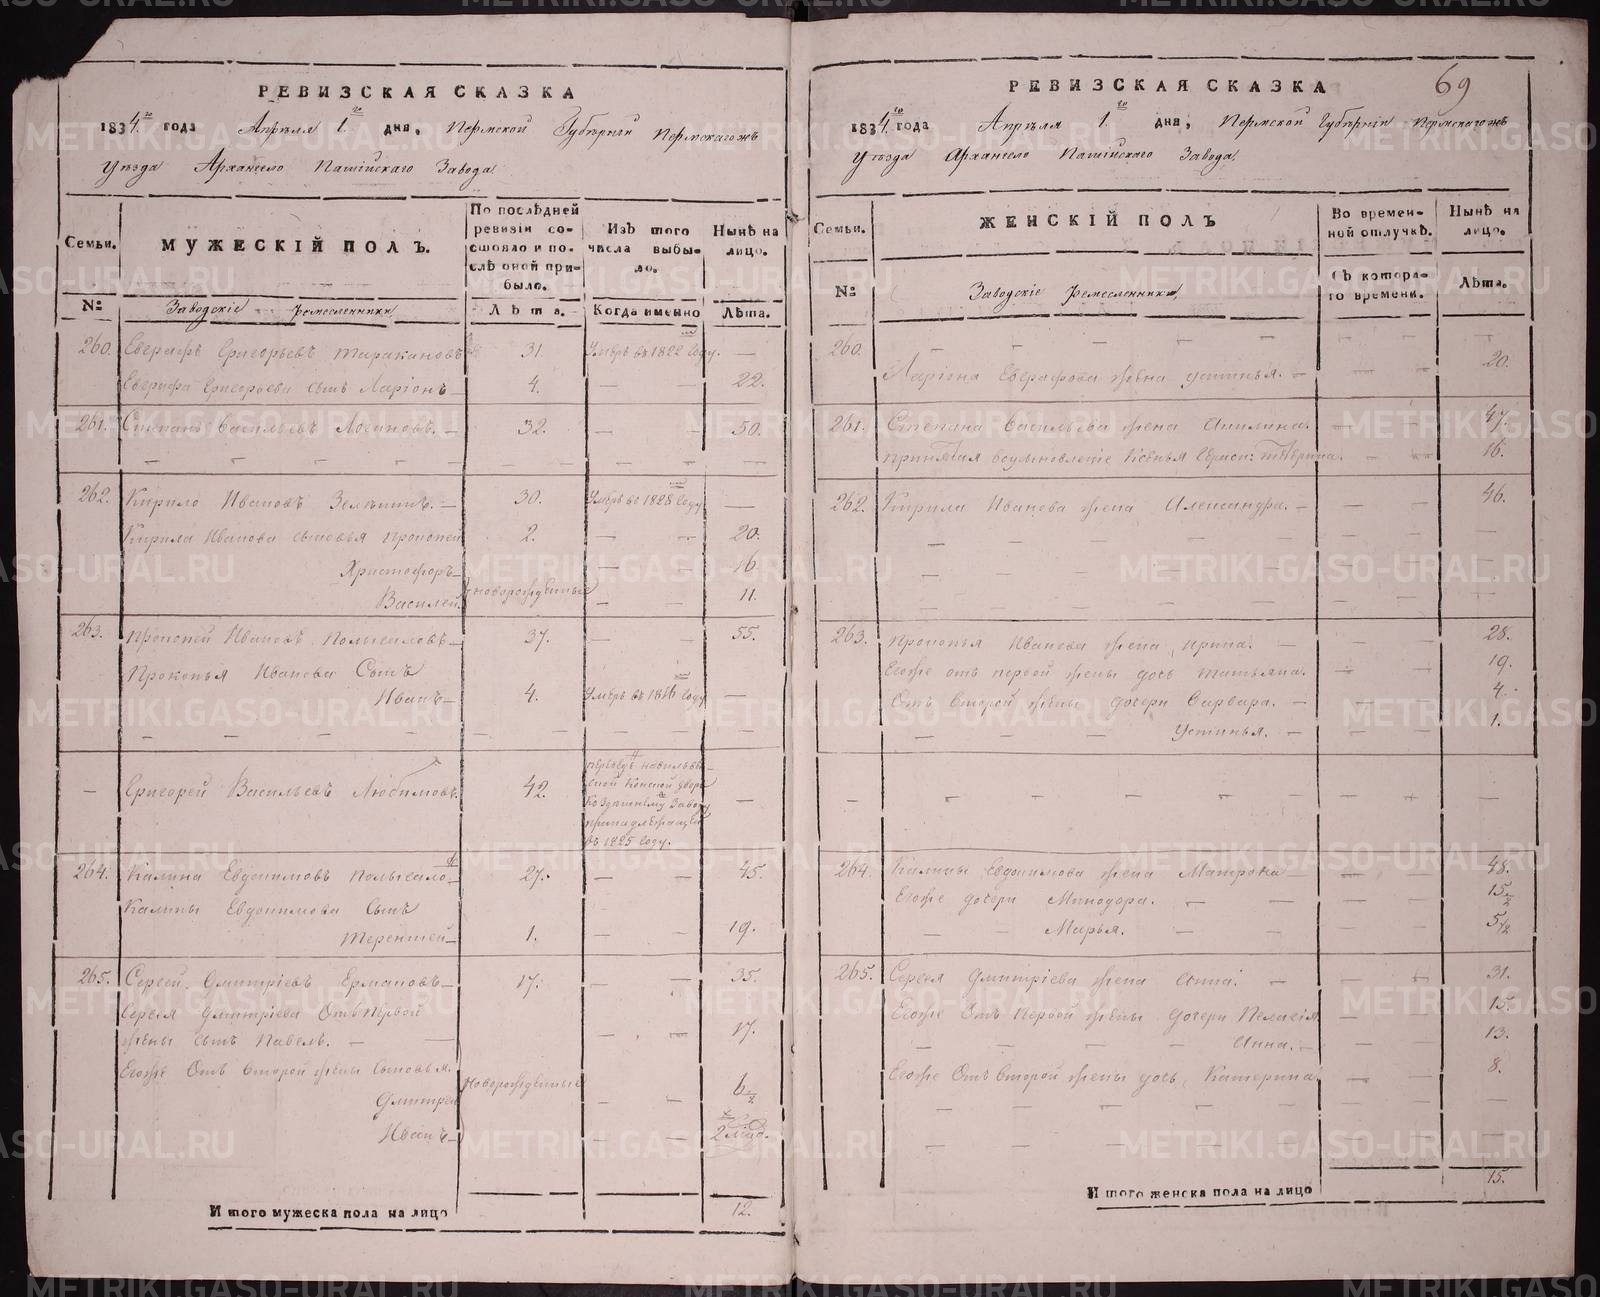 РЕВИЗСКАЯ СКАЗКА
1834го года Апреля 1го дня, Пермской Губернiи Пермскагожъ
Уезда Архангело Пашiйскаго Завода
Семьи.
МУЖЕСКIЙ ПОЛЪ.
По послѣдней ревизiи состояло и послѣ оной прибыло.
Изъ того числа выбыло.
Нынѣ на лицо.
№ Заводскiе Ремесленники Лѣта. Когда именно Лѣта.
260. Евграфъ Григорьевъ Таракановъ 31. Умеръ въ 1822 году. —
Евграфа Григорьева сынъ Ларiонъ 4. — — 22.
261. Степанъ Васильевъ Логиновъ. 32. — — 50.
262. Кирило Ивановъ 30. Умеръ въ 1828 году —
Кирила Иванова сыновья Прокопей 2. — — 20.
Христофоръ — — 16.
Василей новорожденные — — 11.
263. Прокопей Ивановъ 37. — — 55.
Прокопья Иванова Сынъ
Иванъ 4. Умеръ въ 1816 году —
— Григорей Васильевъ Любимовъ. 42. въ 1825 году. —
264. Калина Евдокимовъ 27. — — 45.
Калины Евдокимова Сынъ
Терентей 1. — — 19.
265. Сергей Дмитрiевъ Ермаковъ 17. — — 35.
Сергея Дмитрiева Отъ Первой
жены сынъ Павелъ. — — — 17.
Егоже Отъ Второй жены Сыновья.
Дмитрей Новорожденные — — 6 1/2
Иванъ — — 2
И того мужеска пола на лицо 12.
69
РЕВИЗСКАЯ СКАЗКА
1834го года Апреля 1го дня, Пермской Губернiи Пермскагожъ
Уезда Архангело Пашiйскаго Завода.
Семьи.
ЖЕНСКIЙ ПОЛЪ
Во временной отлучкѣ.
Нынѣ на лицо.
№ Заводскiе Ремесленники,
Съ котораго времени.
Лѣта.
260. — —
Ларiона Евграфова жена Устинья. — 20.
261. Степана Васильева жена Акилина. — — 47.
принятая всыновленiе — — 16.
262. Кирила Иванова жена Александра. — — — 46.
263. Прокопья Иванова жена Ирина. — 28.
Егоже отъ первой жены дочь Татьяна. — — 19.
Отъ Второй жены дочери Варвара. — — — 4.
Устинья. — 1.
264. Калины Евдокимова жена Матрона — — 48.
Егоже дочери Минодора. — — 15 1/2
Марья. — — — 5 1/2
265. Сергея Дмитрiева жена Анна — — — 31.
Егоже Отъ Первой жены дочери Пелагiя — — 15.
Анна. — — — 13.
Егоже Отъ Второй жены дочь, Катерина — — 8.
И того женска пола на лицо 15.
METRIKI.GASO-URAL.RU